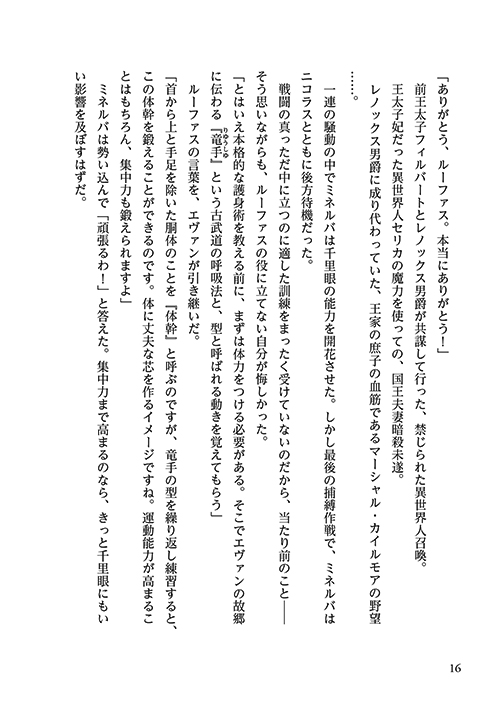 「ありがとう、ルーファス。本当にありがとう！」
前王太子フィルバートとレノックス男爵が共謀して行った、禁じられた異世界人召喚。
王太子妃だった異世界人セリカの魔力を使っての、国王夫妻暗殺未遂。
レノックス男爵に成り代わっていた、王家の庶子の血筋であるマーシャル・カイルモアの野望
……。
一連の騒動の中でミネルバは千里眼の能力を開花させた。しかし最後の捕縛作戦で、ミネルバは
ニコラスとともに後方待機だった。
戦闘の真っただ中に立つのに適した訓練をまったく受けていないのだから、当たり前のこと――
そう思いながらも、ルーファスの役に立てない自分が悔しかった。
「とはいえ本格的な護身術を教える前に、まずは体力をつける必要がある。そこでエヴァンの故郷
に伝わる『竜手』という古武道の呼吸法と、型と呼ばれる動きを覚えてもらう」
りゅうしゅ
ルーファスの言葉を、エヴァンが引き継いだ。
「首から上と手足を除いた胴体のことを『体幹』と呼ぶのですが、竜手の型を繰り返し練習すると、
この体幹を鍛えることができるのです。体に丈夫な芯を作るイメージですね。運動能力が高まるこ
とはもちろん、集中力も鍛えられますよ」
ミネルバは勢い込んで「頑張るわ！」と答えた。集中力まで高まるのなら、きっと千里眼にもい
い影響を及ぼすはずだ。
16